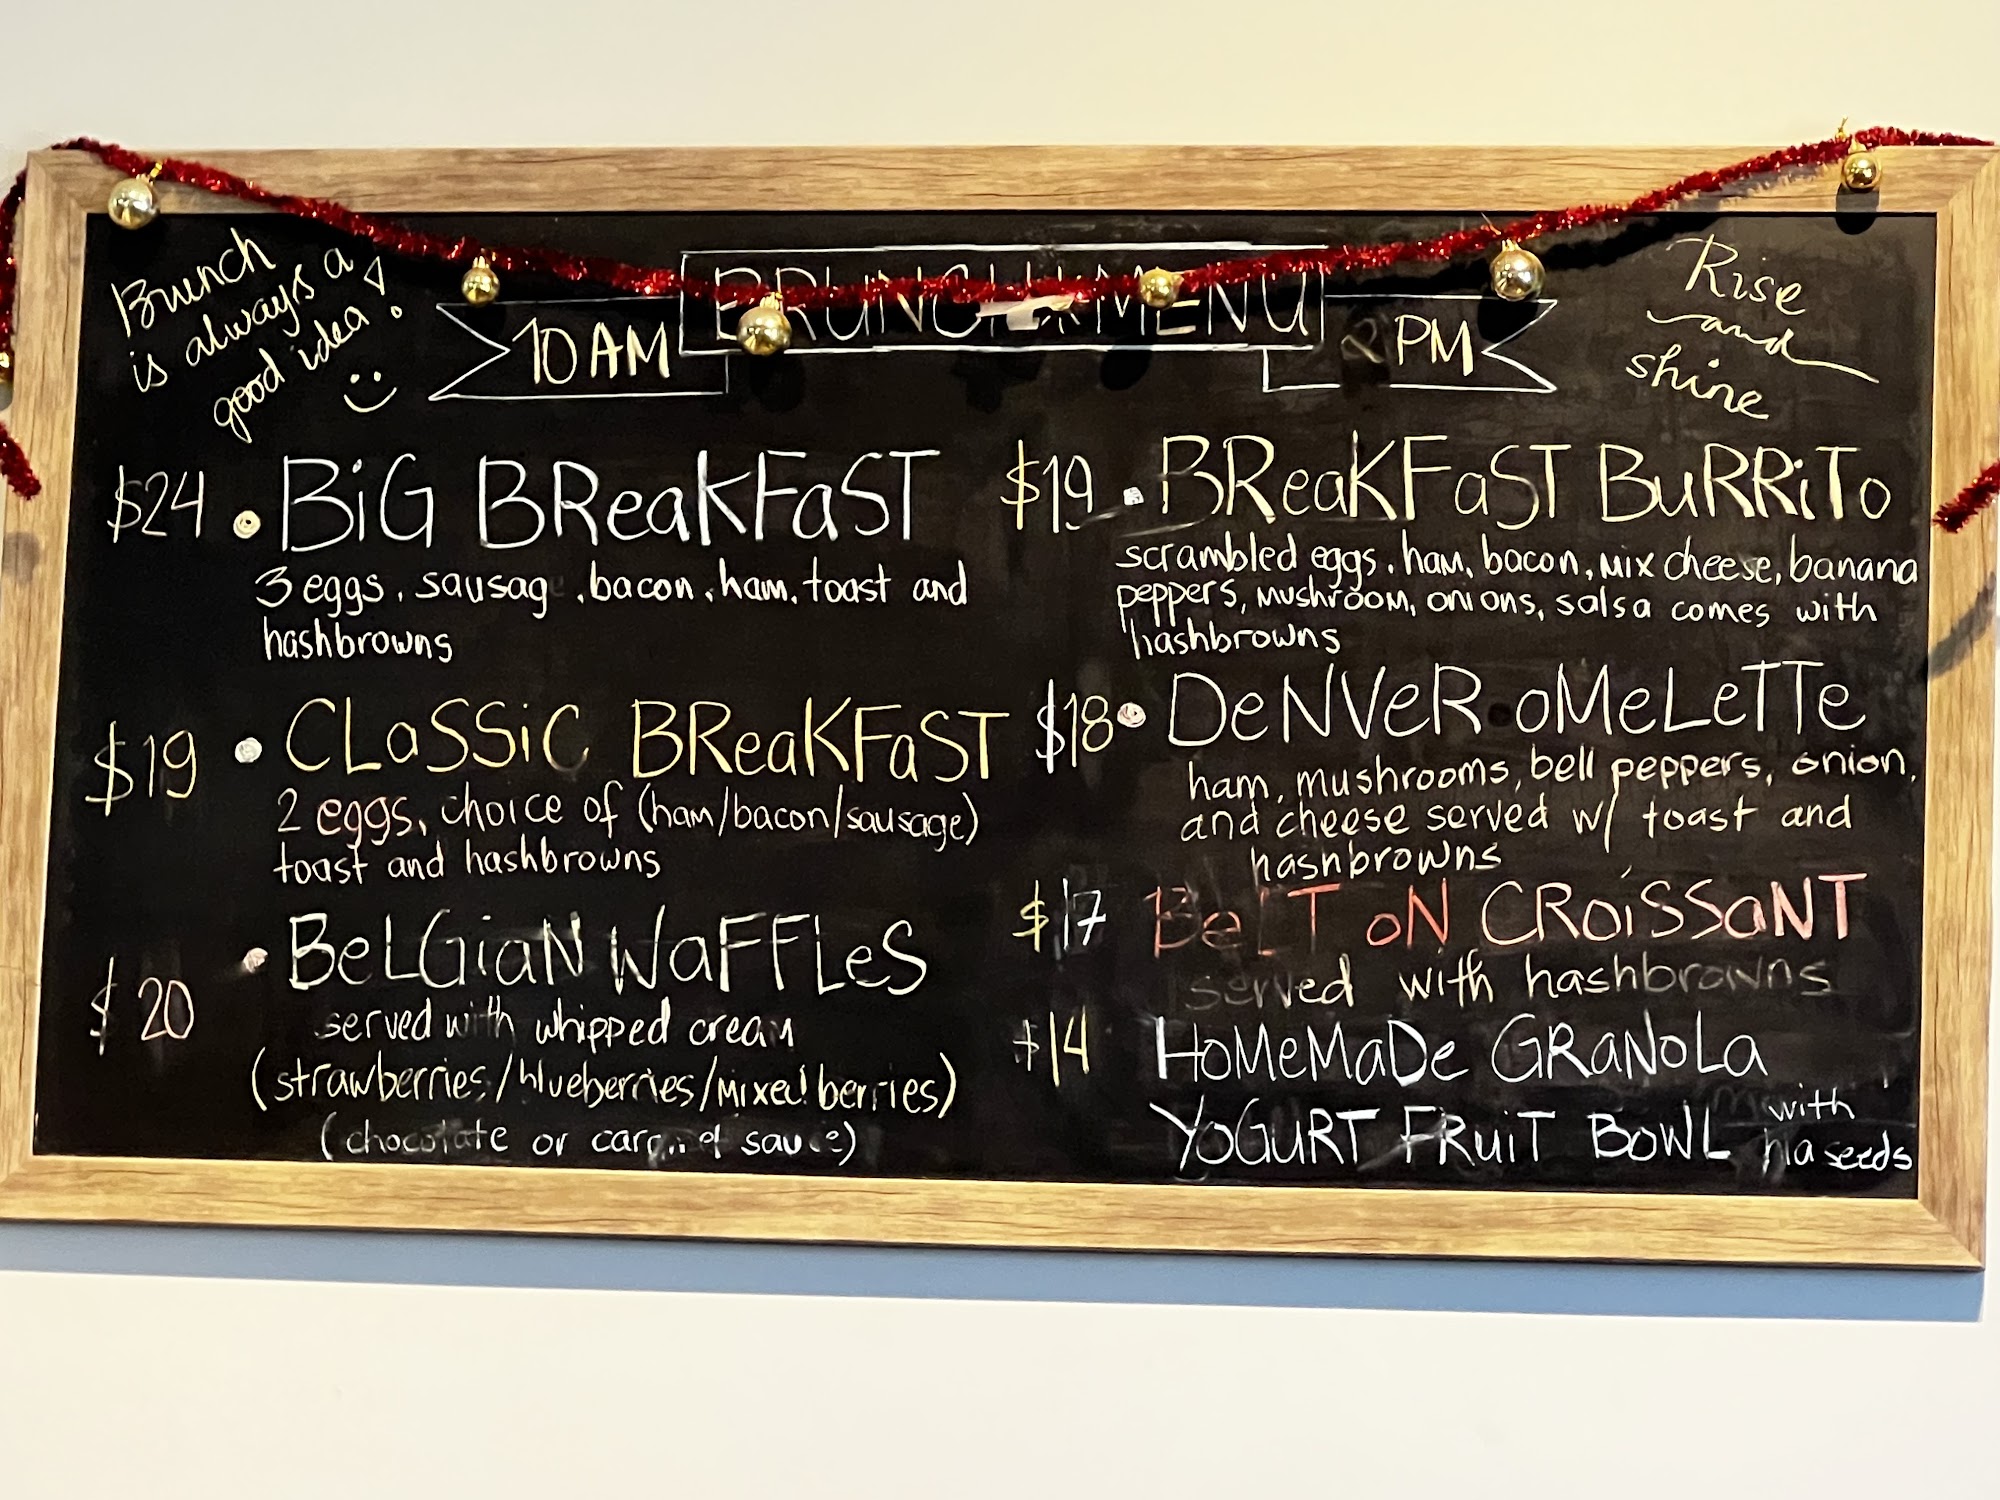 Brunch
is always a
good idea!
BRUNCH MENU
10 AM
2 PM
Rise
and
shine
$24 • BiG BReaKFaST
3 eggs, sausag, bacon, ham, toast and
hashbrowns
$19 • CLaSSiC BReaKFaST
2 eggs, choice of (ham/bacon/sausage)
toast and hashbrowns
$20 • BeLGiaN WaFFLeS
served with whipped cream
(strawberries/blueberries/mixed berries)
(chocolate or caramel sauce)
$19 • BReaKFaST BuRRiTo
scrambled eggs, ham, bacon, mix cheese, banana
peppers, mushroom, onions, salsa comes with
hashbrowns
$18 • DeNVeR oMeLeTTe
ham, mushrooms, bell peppers, onion,
and cheese served w/ toast and
hashbrowns
$17 BeLT oN CRoiSSaNT
served with hashbrowns
$14 HoMeMaDe GRaNoLa
YoGURT FRuiT BoWL with
hia seeds